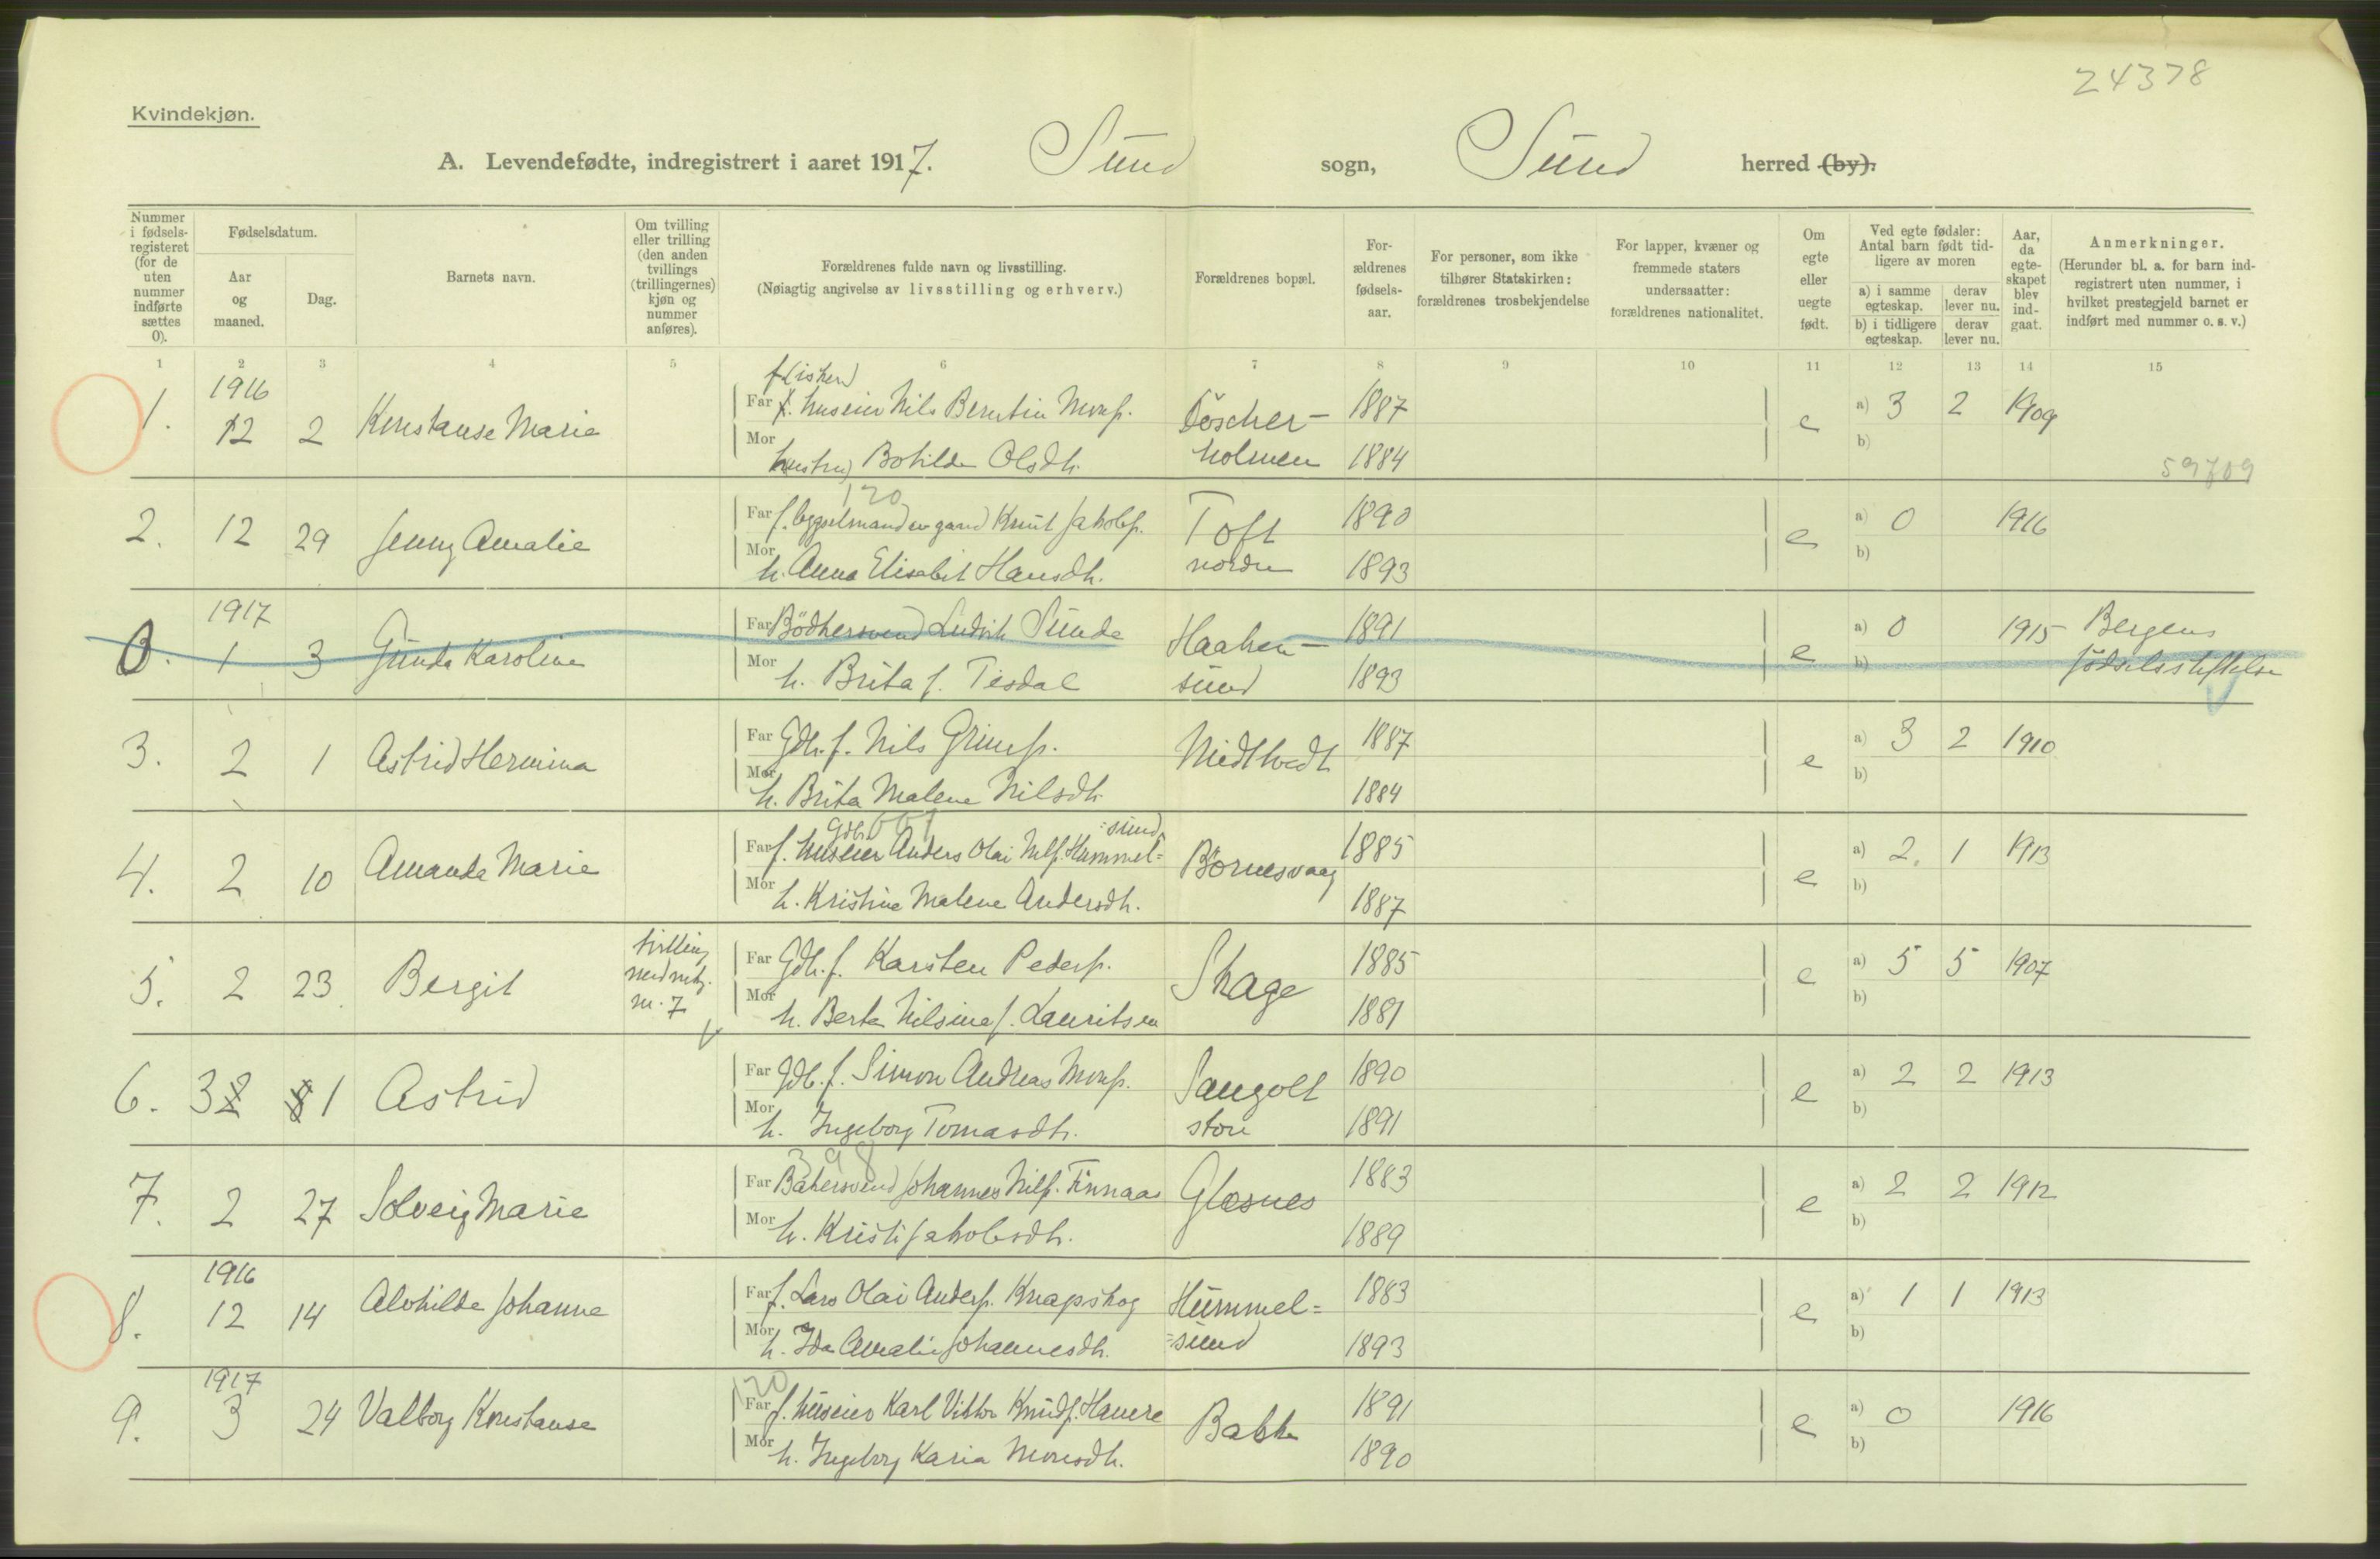 24378
Kvindekjøn.
A. Levendefødte, indregistrert i aaret 1917. Sund sogn, Sund herred (by).
Nummer i fødselsregisteret (for de uten nummer indførte sættes 0).
Fødselsdatum.
Aar og maaned.
Dag.
Barnets navn.
Om tvilling eller trilling (den anden tvillings (trillingernes) kjøn og nummer anføres).
Forældrenes fulde navn og livsstilling.
(Nøiagtig angivelse av livsstilling og erhverv.)
Forældrenes bopæl.
Forældrenes fødselsaar.
For personer, som ikke tilhører Statskirken: forældrenes trosbekjendelse
For lapper, kvæner og fremmede staters undersaatter: forældrenes nationalitet.
Om egte eller uegte født.
Ved egte fødsler: Antal barn født tidligere av moren
a) i samme egteskap. derav lever nu.
b) i tidligere egteskap. derav lever nu.
Aar, da egteskapet blev indgaat.
Anmerkninger.
(Herunder bl. a. for barn indregistrert uten nummer, i hvilket prestegjeld barnet er indført med nummer o. s. v.)
1 2 3 4 5 6 7 8 9 10 11 12 13 14 15
1916 f(isker)
1. 12 2 Konstanse Marie Far f. huseier Nils Berntin Monss. 1887 e a) 3 2 1909
Mor hustru Bothilde Olsdtr. holmen 1884 b)
59709
120
2. 12 29 Jenny Amalie Far Knut Jakobs. Toft 1890 e a) 0 1916
Mor h. Anna Elisabet Hansdtr. nordre 1893 b)
1917
0. 1 3 Gunda Karoline Far Bödkersvend Ludvik Sunde Haaken- 1891 e a) 0 1915 Bergens
Mor h. Brita f. Tisdal sund 1893 b) födselsstiftelse
3. 2 1 Astrid Hermina Far Gdbr. f. Nils Grims. Midttvedt 1887 e a) 3 2 1910
Mor h. Brita Malene Nilsdtr. 1884 b)
gdbr. =sund
4. 2 10 Amanda Marie Far f. huseier Anders Olai Nils. Hummel= Börnesvaag 1885 e a) 2. 1 1913
Mor h. Kristine Malene Andersdtr. 1887 b)
5. 2 23 Bergit tvilling med nr. 7 Far Gdbr. f. Karsten Peders. Skage 1885 e a) 5 5 1907
Mor h. Berta Nilsine f. Lauritsen 1881 b)
6. 32 81 Astrid Far Gdb. f. Simon Andreas Monss. Sangolt 1890 e a) 2 2 1913
Mor h. Ingeborg Tomasdtr. store 1891 b)
398
7. 2 27 Solveig Marie Far Bakersvend Johannes Nils. Finnaas Glesnes 1883 e a) 2 2 1912
Mor h. Kristi Jakobsdtr. 1889 b)
1916
8. 12 14 Alvhilde Johanne Far f. Lars Olai Anders. Knapskog Hummel= 1883 e a) 1 1 1913
Mor h. Ida Amalie Johannesdtr. =sund 1893 b)
1917 120
9. 3 24 Valborg Konstanse Far f. huseier Karl Viktor Knuds. Havere Bakke 1891 e a) 0 1916
Mor h. Ingeborg Karia Monsdtr. 1890 b)